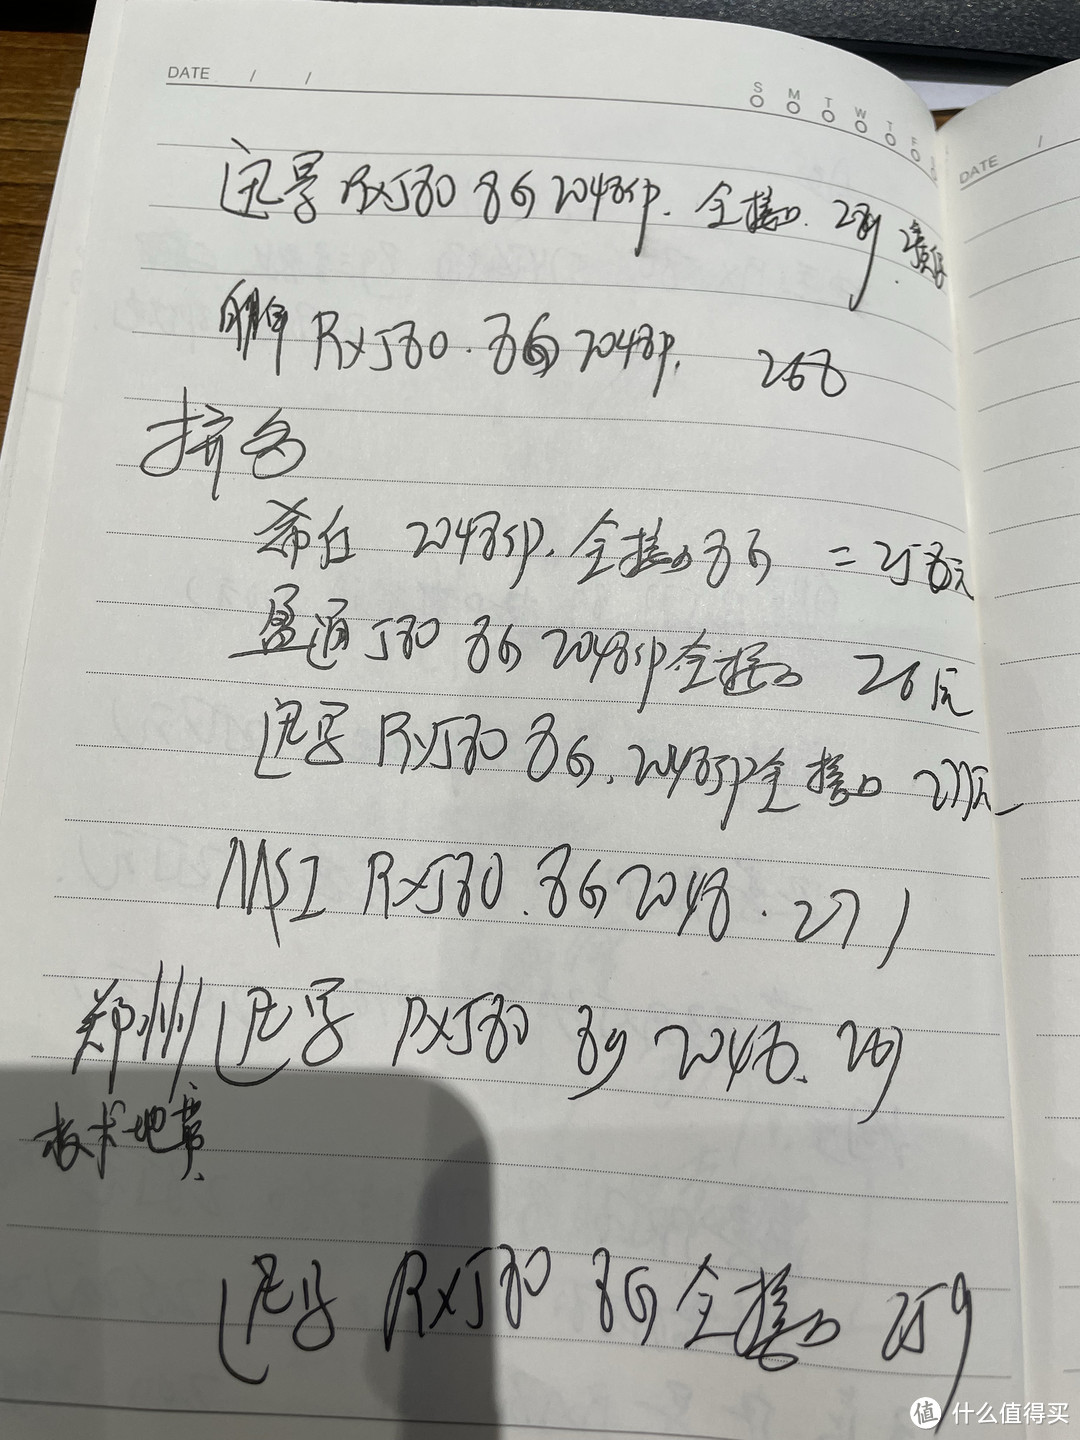 DATE / /
S M T W T F
DATE /
迅景 RX580 8G 2048SP. 全接口. 289
RX580. 8G 2048SP. 268
拼多
希仕 2048SP. 全接口 8G = 258元
盈通 580 8G 2048SP 全接口 26 元
迅景 RX580 8G. 2048SP 全接口 277元
MSI RX580. 8G 2048. 271
郑州 迅景 RX580 8G 2048. 269
技术地黄
迅景 RX580 8G 全接口 259
值 什么值得买